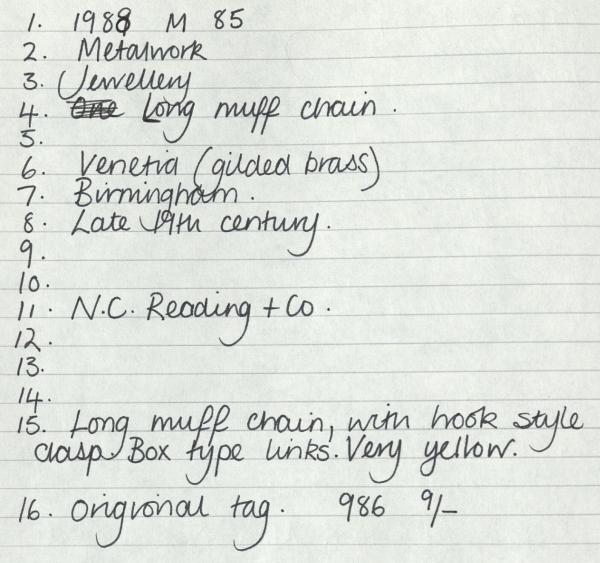 1. 1988 M 85
2. Metalwork
3. Jewellery
4. Long muff chain.
5.
6. Venetia (gilded brass)
7. Birmingham.
8. Late 19th century.
9.
10.
11. N.C. Reading + Co.
12.
13.
14.
15. Long muff chain, with hook style
clasp Box type links. Very yellow.
16. Origional tag. 986 9/-